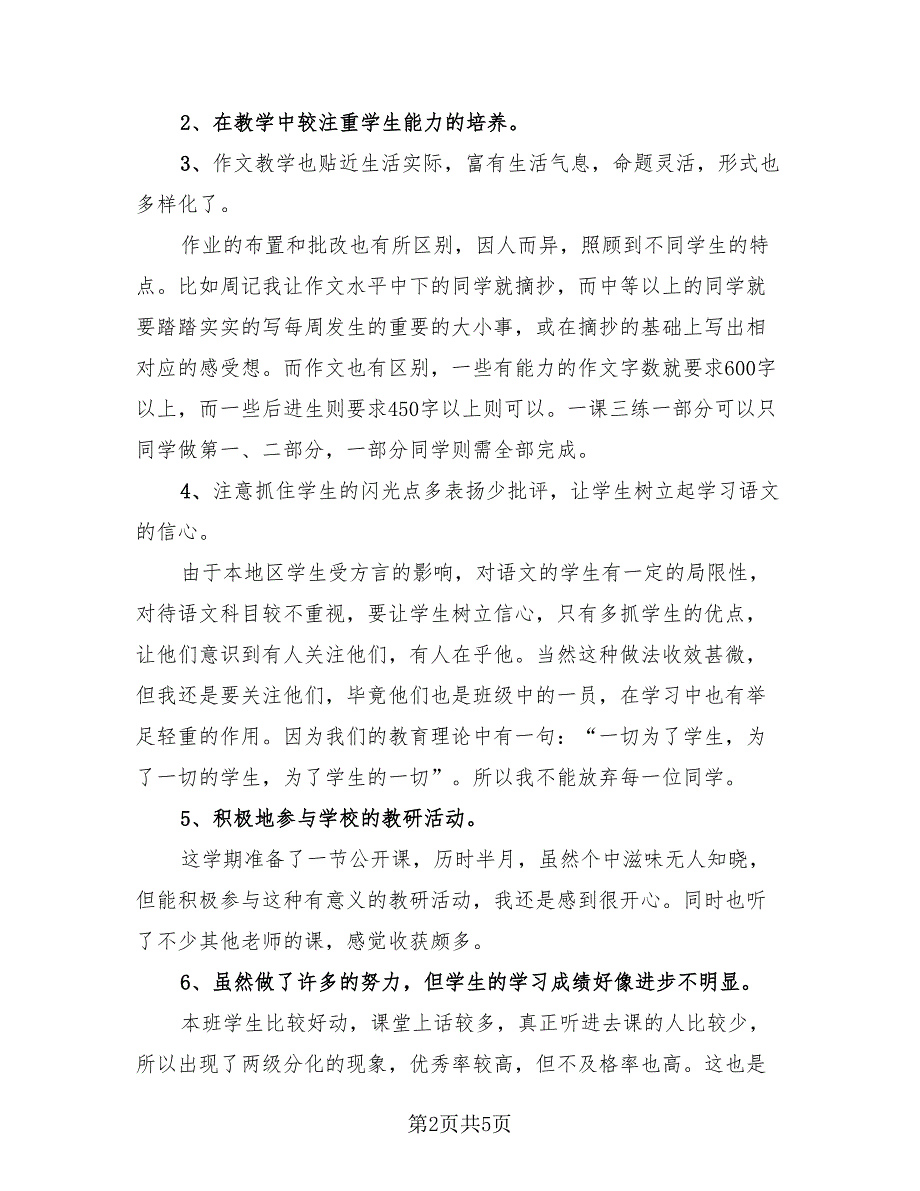 2、在教学中较注重学生能力的培养。
3、作文教学也贴近生活实际，富有生活气息，命题灵活，形式也
多样化了。
作业的布置和批改也有所区别，因人而异，照顾到不同学生的特
点。比如周记我让作文水平中下的同学就摘抄，而中等以上的同学就
要踏踏实实的写每周发生的重要的大小事，或在摘抄的基础上写出相
对应的感受想。而作文也有区别，一些有能力的作文字数就要求600字
以上，而一些后进生则要求450字以上则可以。一课三练一部分可以只
同学做第一、二部分，一部分同学则需全部完成。
4、注意抓住学生的闪光点多表扬少批评，让学生树立起学习语文
的信心。
由于本地区学生受方言的影响，对语文的学生有一定的局限性，
对待语文科目较不重视，要让学生树立信心，只有多抓学生的优点，
让他们意识到有人关注他们，有人在乎他。当然这种做法收效甚微，
但我还是要关注他们，毕竟他们也是班级中的一员，在学习中也有举
足轻重的作用。因为我们的教育理论中有一句：“一切为了学生，为
了一切的学生，为了学生的一切”。所以我不能放弃每一位同学。
5、积极地参与学校的教研活动。
这学期准备了一节公开课，历时半月，虽然个中滋味无人知晓，
但能积极参与这种有意义的教研活动，我还是感到很开心。同时也听
了不少其他老师的课，感觉收获颇多。
6、虽然做了许多的努力，但学生的学习成绩好像进步不明显。
本班学生比较好动，课堂上话较多，真正听进去课的人比较少，
所以出现了两级分化的现象，优秀率较高，但不及格率也高。这也是
第2页共5页